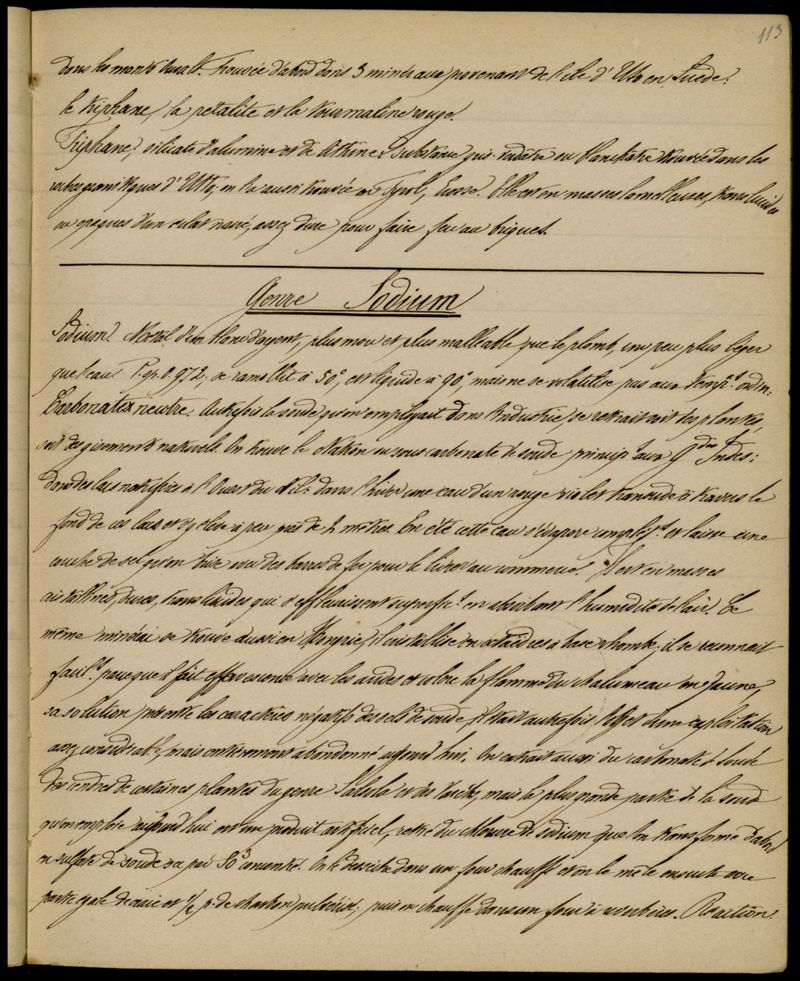 113
dans les monts Ourals. Trouvée d'abord dans 3 minéraux provenant de l'île d'Uto en Suède:
le triphane, la pétalite et la tourmaline rouge.
Triphane, silicate d'alumine et de lithine. Substance gris verdâtre ou blanchâtre trouvée dans les
roches granitiques d'Uto, on l'a aussi trouvée en Tyrol, Ecosse. Elle est en masses lamelleuses, translucides
ou opaques d'un éclat nacré, assez dure pour faire feu au briquet.
Genre Sodium
Sodium. Métal d'un blanc d'argent, plus mou et plus malléable que le plomb, un peu plus léger
que l'eau P. sp. 0.972. se ramollit à 50°, est liquide à 90°, mais ne se volatilise pas aux temp.es ordin.
Carbonate neutre. Autrefois la soude qu'on employait dans l'industrie, se retirait soit des plantes,
soit des gisements naturels. On trouve le Natron ou sous carbonate de soude princip.t aux Gdes Indes:
dans des lacs natrifères à l'Ouest du Nil. dans l'hiver une eau d'un rouge violet transsude à travers le
fond de ces lacs et s'y élève à peu près de 2 mètres. En été cette eau s'évapore complèt.t et laisse une
couche de sel qu'on brise avec des barres de fer pour le livrer au commerce. Il est en masses
cristallines, dures, translucides qui s'effleurissent superfic.t en absorbant l'humidité de l'air. Ce
même minérai se trouve aussi en Hongrie, il cristallise en octaèdres à base rhombe; il se reconnait
facil.t parceque il fait effervescence avec les acides et colore la flamme du chalumeau en jaune,
sa solution présente les caractères négatifs des sels de soude, il était autrefois l'objet d'une exploitation
assez considérable, mais entièrement abandonné aujourd'hui. On extrait aussi du carbonate de soude
des cendres de certaines plantes du genre Salsola et des varechs, mais la plus grande partie de la soude
qu'on emploie aujourd'hui est un produit artificiel, retiré du chlorure de sodium que l'on transforme d'abord
en sulfate de soude sec par SO3 concentré. On le dessèche dans un four chauffé et on le mêle ensuite avec
partie égale de craie et 1/2 p. de charbon pulvérisé; puis on chauffe dans un four à réverbères. Réaction: